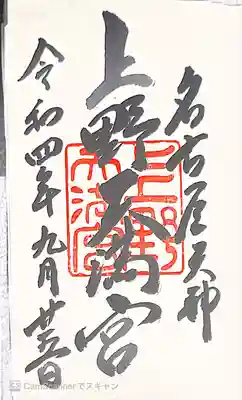 名古屋天神
上野天満宮
令和四年九月廿五日
上野天満宮
CamScannerでスキャン